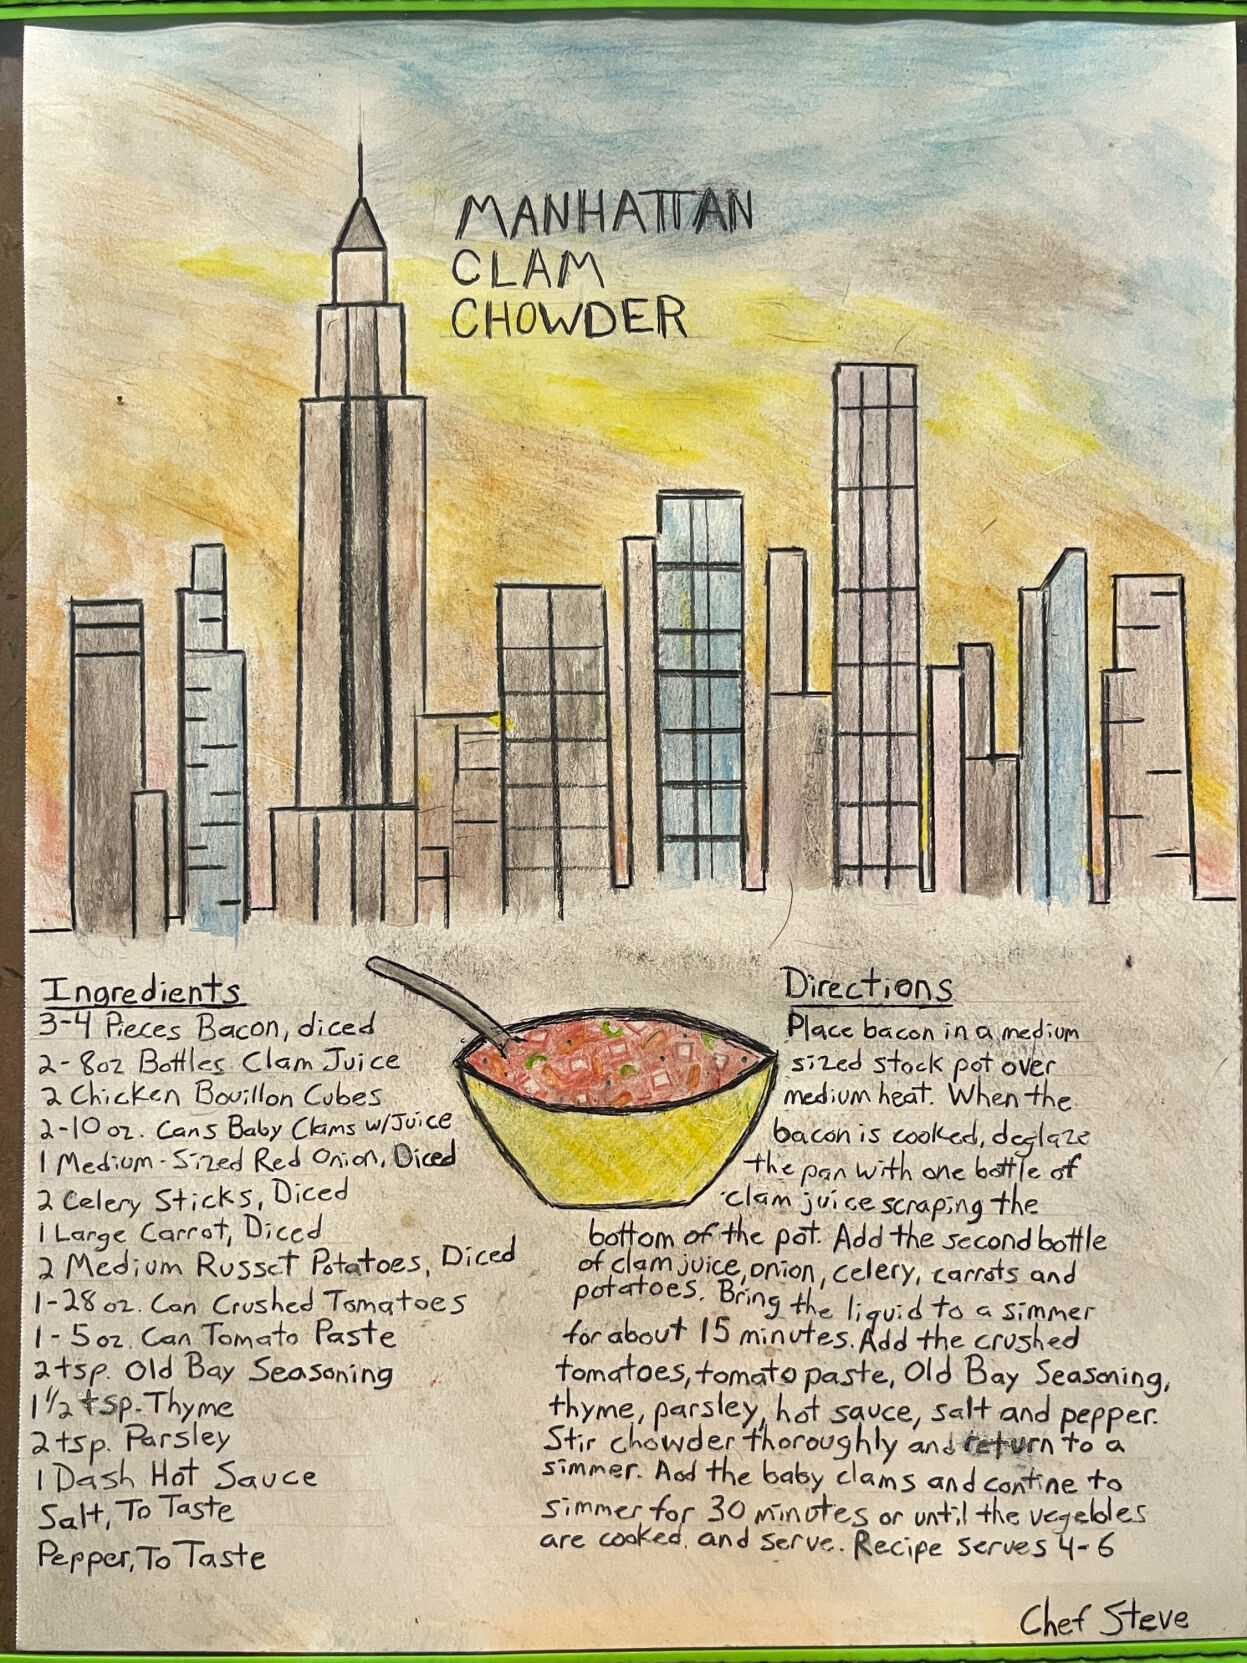 MANHATTAN
CLAM
CHOWDER
Ingredients
3-4 Pieces Bacon, diced
2-8oz Bottles Clam Juice
2 Chicken Bouillon Cubes
2-10 oz. Cans Baby Clams w/Juice
1 Medium-Sized Red Onion, Diced
2 Celery Sticks, Diced
1 Large Carrot, Diced
2 Medium Russet Potatoes, Diced
1-28 oz. Can Crushed Tomatoes
1-5 oz. Can Tomato Paste
2 tsp. Old Bay Seasoning
1 1/2 tsp. Thyme
2 tsp. Parsley
1 Dash Hot Sauce
Salt, To Taste
Pepper, To Taste
Directions
Place bacon in a medium
sized stock pot over
medium heat. When the
bacon is cooked, deglaze
the pan with one bottle of
clam juice scraping the
bottom of the pot. Add the second bottle
of clam juice, onion, celery, carrots and
potatoes. Bring the liquid to a simmer
for about 15 minutes. Add the crushed
tomatoes, tomato paste, Old Bay Seasoning,
thyme, parsley, hot sauce, salt and pepper.
Stir chowder thoroughly and return to a
simmer. Add the baby clams and contine to
simmer for 30 minutes or until the vegetbles
are cooked. and serve. Recipe serves 4-6
Chef Steve